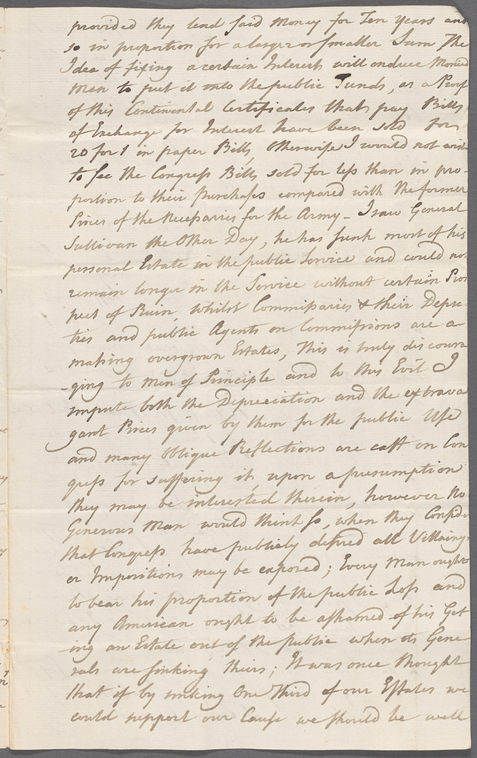 provided they lend said Money for Ten years and
so in proportion for a larger or smaller Sum The
Idea of fixing a certain Interest will induce Monied
Men to put it into the public Funds, as a Proof
of this Continental Certificates that pay Bills
of Exchange for Interest have been sold For
20 for 1 in paper Bills, Otherwise I would not wish
to see the Congress Bills sold for less than in pro-
portion to their purchases compared with the former
Prices of the Necessaries for the Army - I saw General
Sullivan the Other Day, he has sunk most of his
personal Estate in the public Service and could not
remain longer in the Service without certain Pros
pect of Ruin, whilst Commissaries & their Depu-
ties and public Agents on Commissions are a-
massing overgrown Estates, This is truly discoura
-ging to Men of Principle and to this Evil I
impute both the Depreciation and the extrava
gant Prices given by them for the public Use
and many Oblique Reflections are cast on Con
gress for suffering it, upon a presumption
they may be interested therein, however No
Generous Man would think so, when they Consider
that Congress have publicly desired all Villainy
or Impositions may be exposed; Every Man ought
to bear his proportion of the public Loss and
any American ought to be ashamed of his Get
ing an Estate out of the public when its Gene
rals are sinking theirs; It was once thought
that if by sinking One Third of our Estates we
could support our Cause we should be well